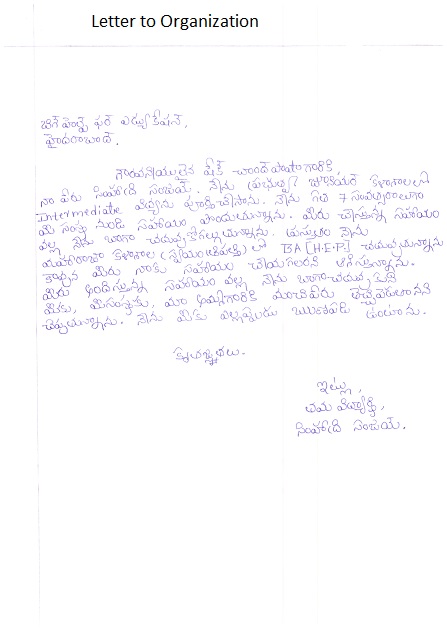 Letter to Organization
బిగ్ హెల్ప్ ఫర్ ఎడ్యుకేషన్,
హైదరాబాద్.
గౌరవనీయులైన షేక్ చాంద్ పాషాగారికి,
నా పేరు సింహాద్రి సంజయ్. నేను ప్రభుత్వ జూనియర్ కళాశాలలో
Intermediate విద్యను పూర్తిచేసాను. నేను గత 7 సంవత్సరాలుగా
మీ సంస్థ నుండి సహాయం పొందుతున్నాను. మీరు చేస్తున్న సహాయం
వల్ల నేను బాగా చదువుకోగల్గుతున్నాను. ప్రస్తుతం నేను
మహారాజా కళాశాల లో BA [H.E.P] చదువుతున్నాను
కావున మీరు నాకు సహాయం చేయగలరని ఆశిస్తున్నాను.
మీరు అందిస్తున్న సహాయం వల్ల నేను బాగాచదువుకుని
మీకు, మీసంస్థకు, మా అమ్మగారికి మంచిపేరు తెచ్చిపెడతానని
చెప్తున్నాను. నేను మీకు ఎల్లప్పుడు ఋణపడి ఉంటాను.
కృతజ్ఞతలు.
ఇట్లు,
తమ విద్యార్థి,
సింహాద్రి సంజయ్.